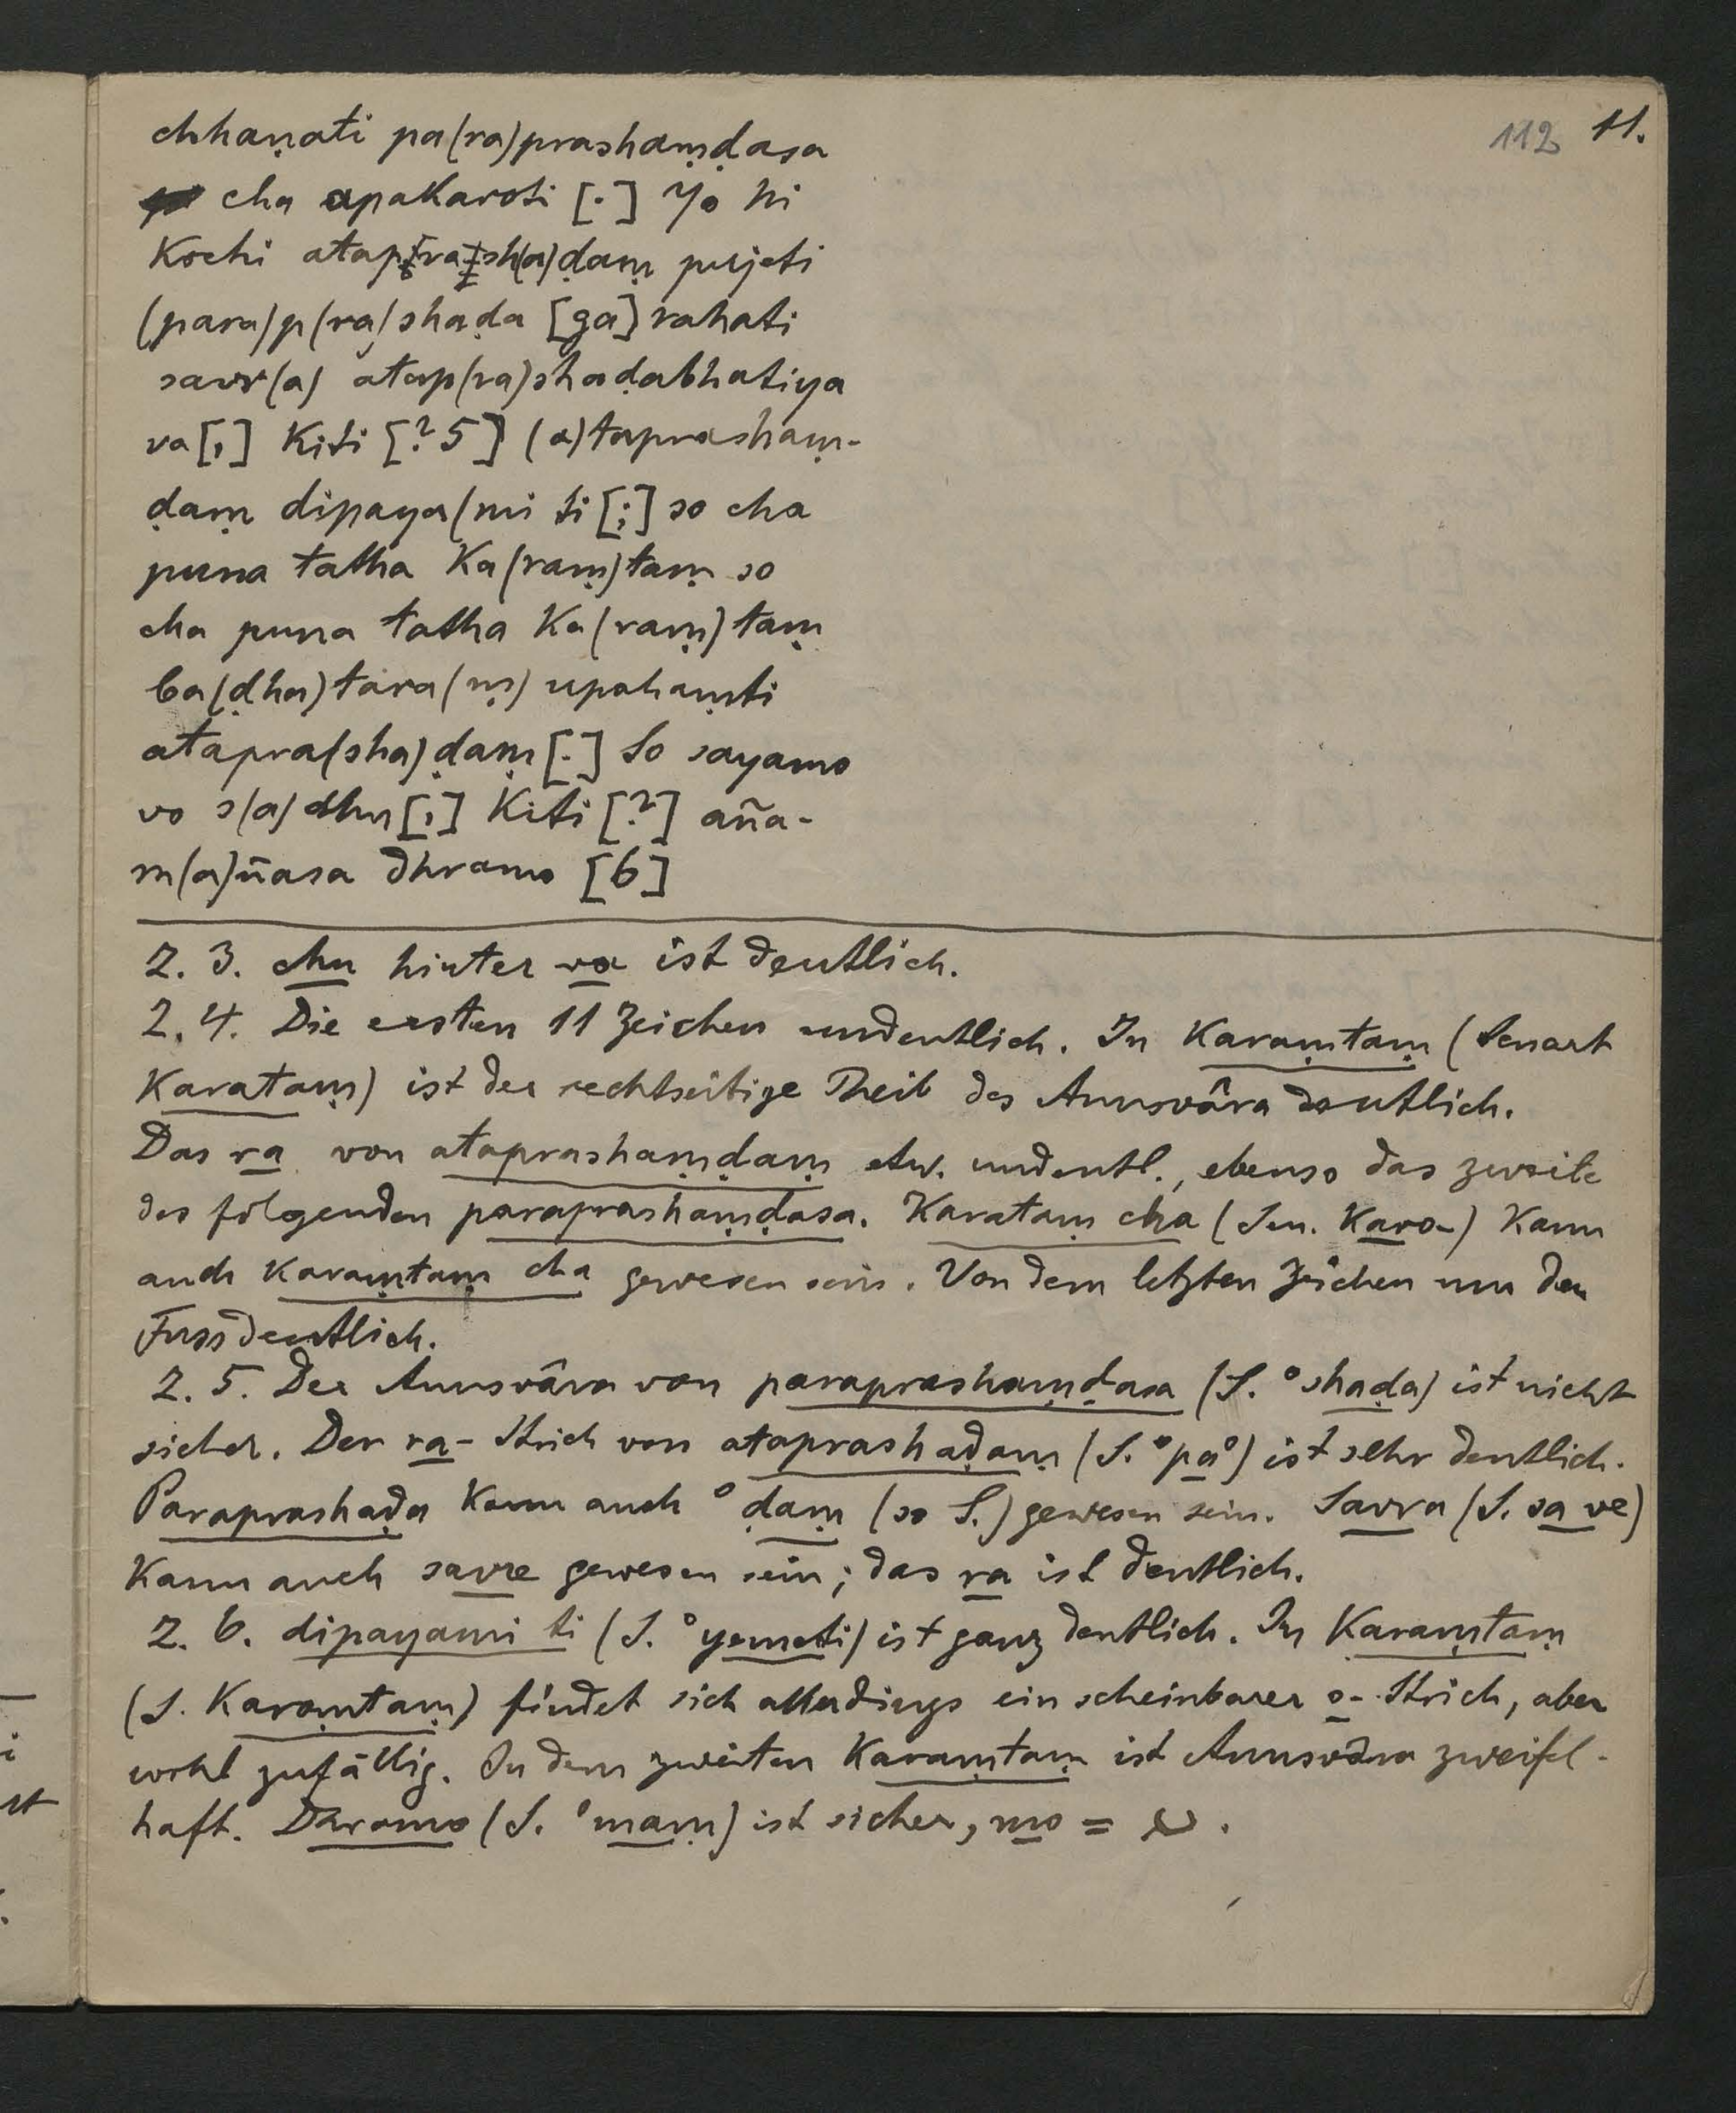 112 11.
chhaṇati pa(ra)prashaṃḍasa
cha apakaroti [.] Yo hi
kochi atap[ra]sh(a)ḍaṃ pujeti
(para)p(ra)shaḍa [ga]rahati
savr(a) atap(ra)shaḍabhatiya
va[,] kiti [? 5] (a)taprashaṃ-
ḍaṃ dipaya(mi ti [;] so cha
puna tatha ka(raṃ)taṃ so
cha puna tatha ka(raṃ)taṃ
ba(ḍha)tara(ṃ) upahaṃti
atapra(sha)ḍaṃ[.] So sayamo
vo s(a)dhu[,] kiti [?] aña-
m(a)ñasa dhramo [6]
Z. 3. chu hinter va ist deutlich.
Z. 4. Die ersten 11 Zeichen undeutlich. In karaṃtaṃ (Senart
karataṃ) ist der rechtseitige Theil des Anusvâra deutlich.
Das ra von ataprashaṃḍaṃ etw. undeutl., ebenso das zweite
des folgenden paraprashaṃḍasa. Karataṃ cha (Sen. karo-) kann
auch karaṃtaṃ cha gewesen sein. Von dem letzten Zeichen nur der
Fuss deutlich.
Z. 5. Der Anusvâra von paraprashaṃḍasa (S. °shaḍa) ist nicht
sicher. Der ra-Strich von ataprashaḍaṃ (S. °pa°) ist sehr deutlich.
Paraprashaḍa kann auch °ḍaṃ (so S.) gewesen sein. Savra (S. sa ve)
kann auch savre gewesen sein; das ra ist deutlich.
Z. 6. dipayami ti (S. °yemeti) ist ganz deutlich. In karaṃtaṃ
(S. karoṃtaṃ) findet sich allerdings ein scheinbarer o-Strich, aber
wohl zufällig. In dem zweiten karaṃtaṃ ist Anusvâra zweifel-
haft. Dhramo (S. °maṃ) ist sicher, mo =